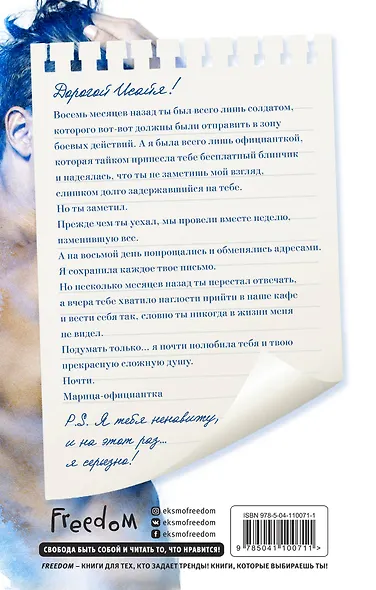 Дорогой Исайя!
Восемь месяцев назад ты был всего лишь солдатом,
которого вот-вот должны были отправить в зону
боевых действий. А я была всего лишь официанткой,
которая тайком принесла тебе бесплатный блинчик
и надеялась, что ты не заметишь мой взгляд,
слишком долго задержавшийся на тебе.
Но ты заметил.
Прежде чем ты уехал, мы провели вместе неделю,
изменившую все.
А на восьмой день попрощались и обменялись адресами.
Я сохранила каждое твое письмо.
Но несколько месяцев назад ты перестал отвечать,
а вчера тебе хватило наглости прийти в наше кафе
и вести себя так, словно ты никогда в жизни меня
не видел.
Подумать только... я почти полюбила тебя и твою
прекрасную сложную душу.
Почти.
Марица-официантка
P.S. Я тебя ненавижу,
и на этот раз...
я серьезно!
Freedom
eksmofreedom
eksmofreedom
eksmofreedom
СВОБОДА БЫТЬ СОБОЙ И ЧИТАТЬ ТО, ЧТО НРАВИТСЯ!
FREEDOM – КНИГИ ДЛЯ ТЕХ, КТО ЗАДАЕТ ТРЕНДЫ! КНИГИ, КОТОРЫЕ ВЫБИРАЕШЬ ТЫ!
ISBN 978-5-04-110071-1
9 785041 100711 >